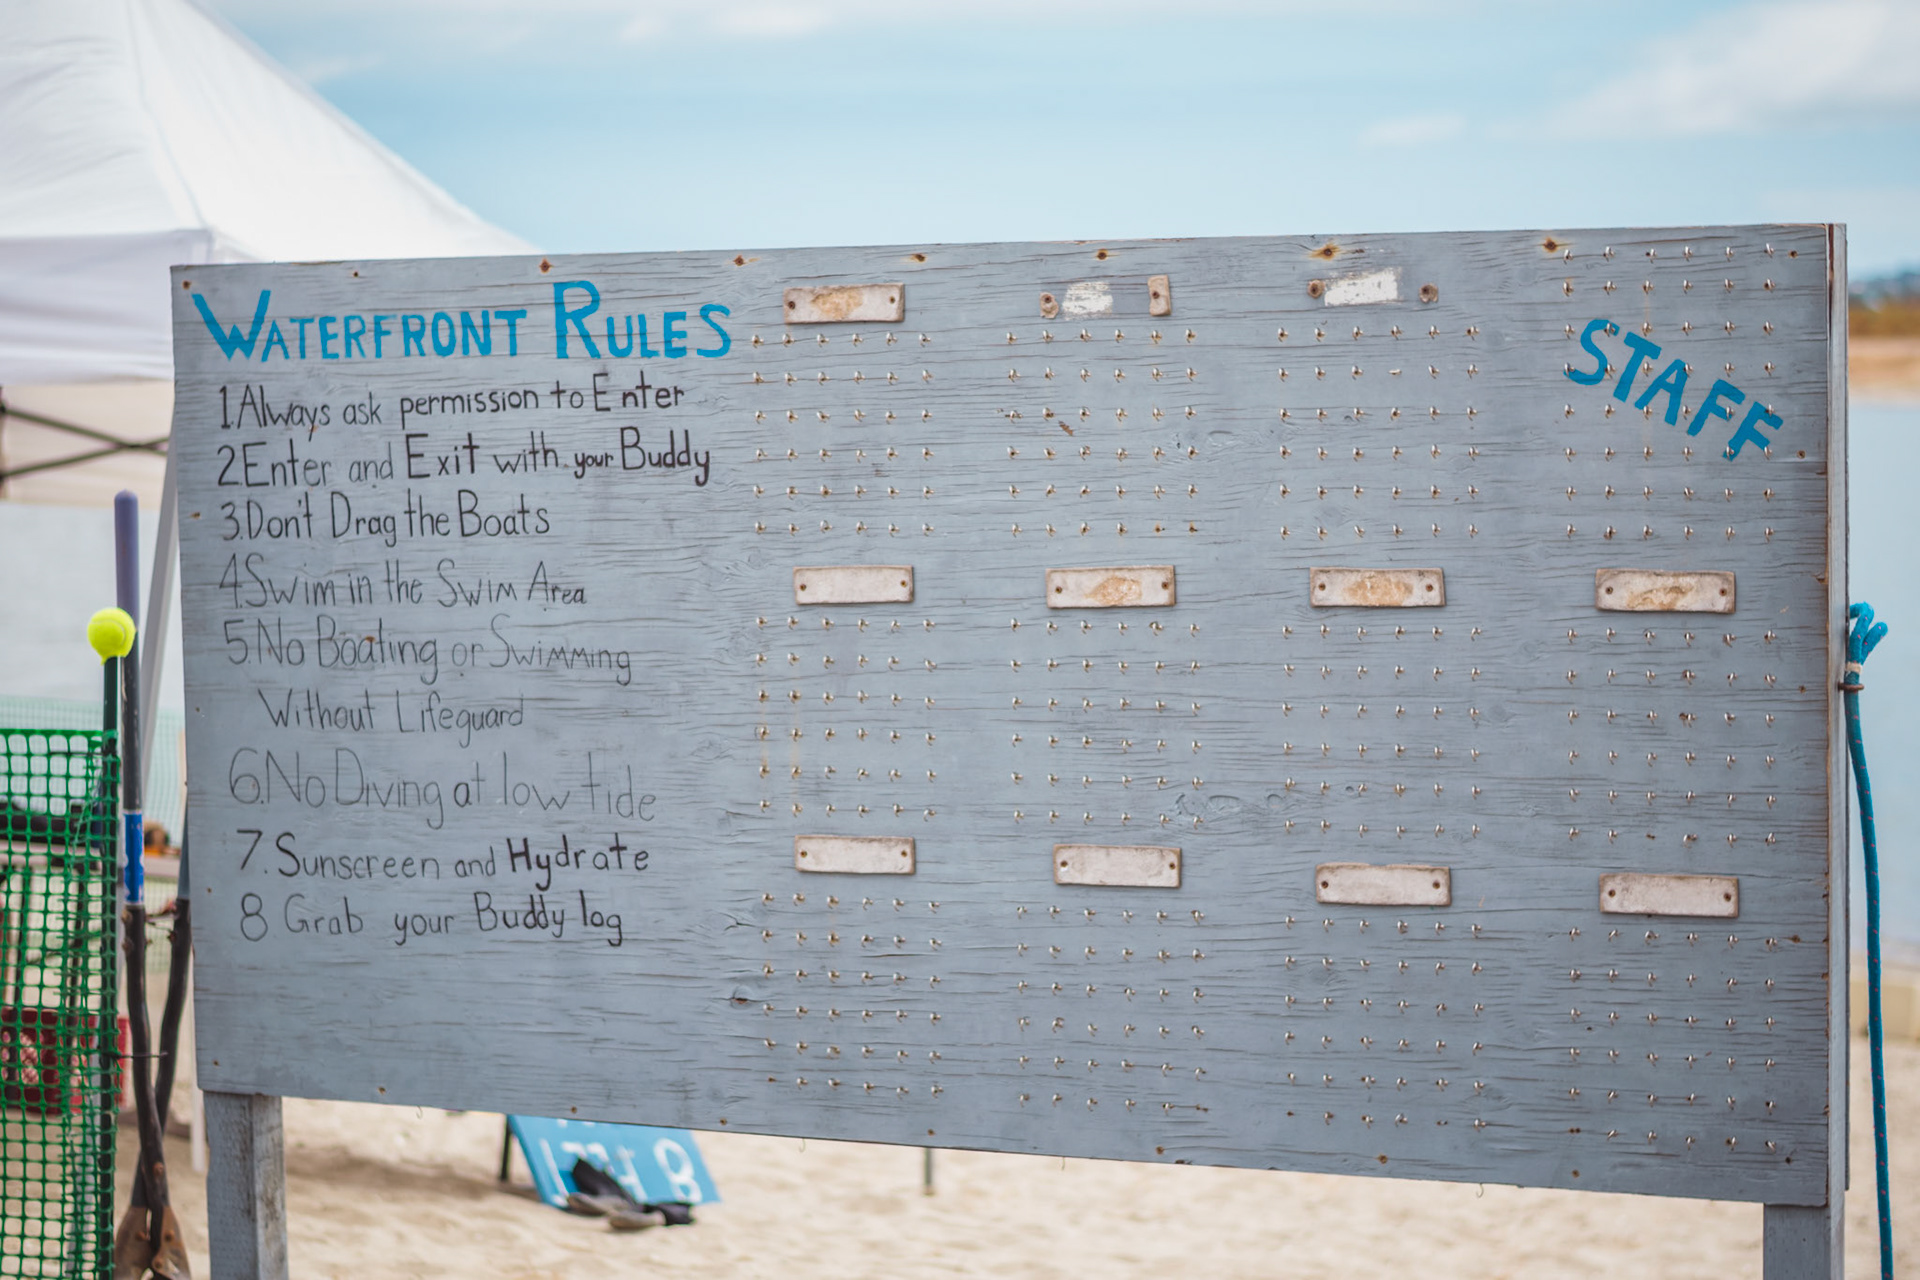 WATERFRONT RULES
1. Always ask permission to Enter
2. Enter and Exit with your Buddy
3. Don't Drag the Boats
4. Swim in the Swim Area
5. No Boating or Swimming
Without Lifeguard
6. No Diving at low tide
7. Sunscreen and Hydrate
8 Grab your Buddy log
STAFF